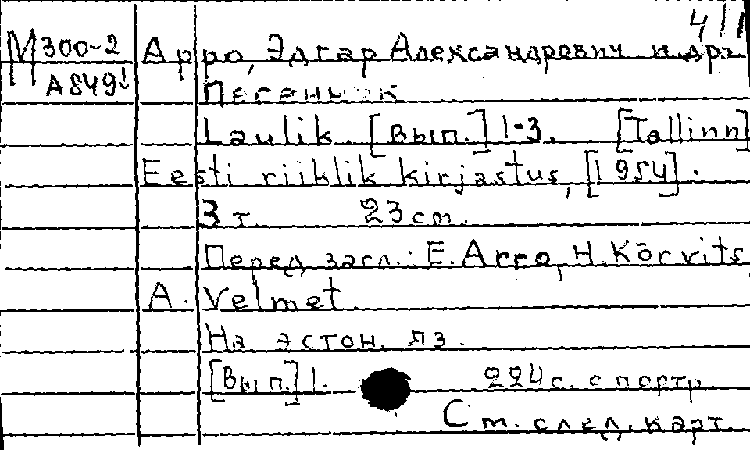 4/1
М300-2 Арро, Эдгар Александрович и др.
А849! Песенник
Laulik. [Вып.] 1-3. [Tallinn]
Eesti riiklik kirjastus, [1954].
3 т. 23 cm.
Перед загл.: E. Arro, H. Kõrvits,
A. Velmet.
На эстон. яз.
[Вып.] 1. 224 с. с портр.
См. след. карт.